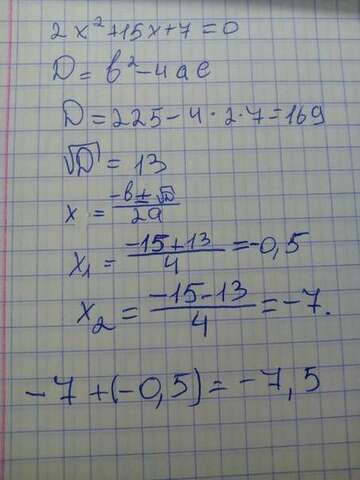 2x²+15x+7=0
D=b²-4ac
D=225-4·2·7=169
√D=13
x=(-b±√D)/2a
x₁=(-15+13)/4=-0,5
x₂=(-15-13)/4=-7.
-7+(-0,5)=-7,5